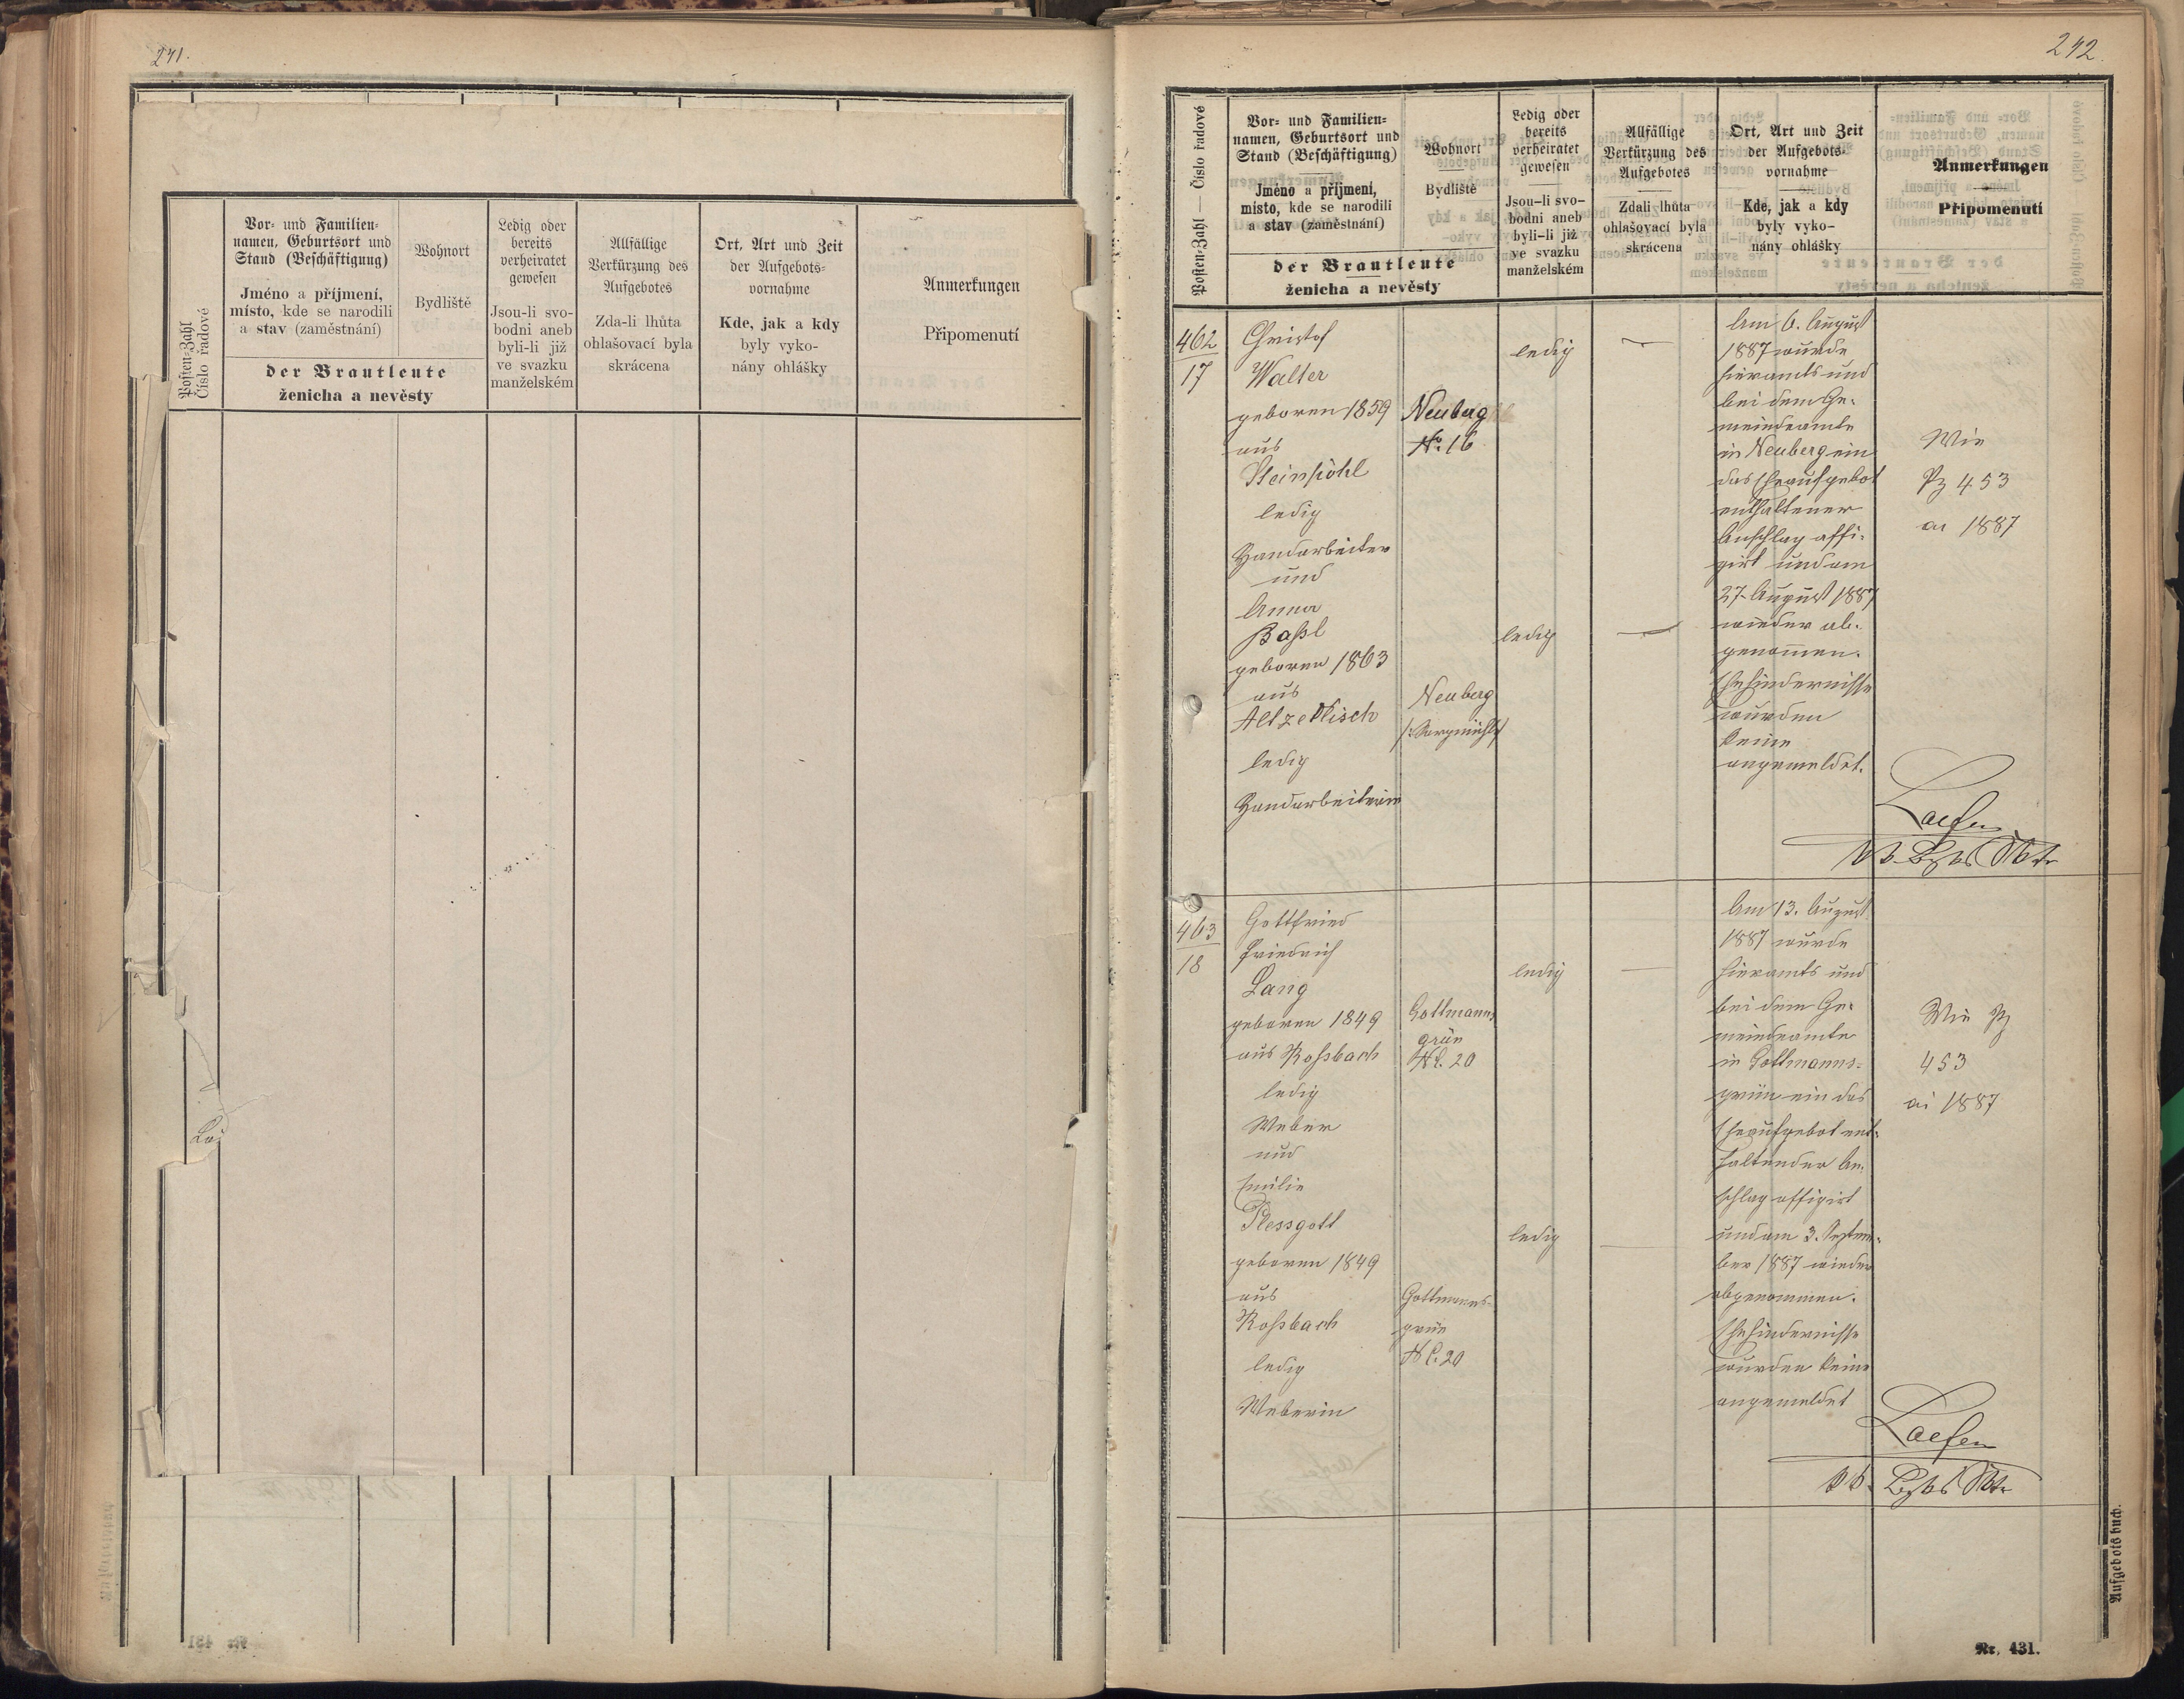 241.
Posten-Zahl
Číslo řadové
Vor- und Familien-
namen, Geburtsort und
Stand (Beschäftigung)
Jméno a příjmení,
místo, kde se narodili
a stav (zaměstnání)
Wohnort
Bydliště
der Brautleute
ženicha a nevěsty
Ledig oder
bereits
verheiratet
gewesen
Jsou-li svo-
bodni aneb
byli-li již
ve svazku
manželském
Allfällige
Verkürzung des
Aufgebotes
Zda-li lhůta
ohlašovací byla
skrácena
Ort, Art und Zeit
der Aufgebots-
vornahme
Kde, jak a kdy
byly vyko-
nány ohlášky
Anmerkungen
Připomenutí
242.
Posten-Zahl — Číslo řadové
Vor- und Familien-
namen, Geburtsort und
Stand (Beschäftigung)
Jméno a příjmení,
místo, kde se narodili
a stav (zaměstnání)
Wohnort
Bydliště
der Brautleute
ženicha a nevěsty
Ledig oder
bereits
verheiratet
gewesen
Jsou-li svo-
bodni aneb
byli-li již
ve svazku
manželském
Allfällige
Verkürzung des
Aufgebotes
Zdali lhůta
ohlašovací byla
skrácena
Ort, Art und Zeit
der Aufgebots-
vornahme
Kde, jak a kdy
byly vyko-
nány ohlášky
Anmerkungen
Připomenutí
462
17
Christof
Walter
geboren 1859
aus
Steinpöhl
ledig
Handarbeiter
und
Anna
Baßl
geboren 1863
aus
Altzedlisch
ledig
Handarbeiterin
Neuberg
No. 16
Neuberg
ledig
ledig
Am 6. August
1887 wurde
hieramts und
bei dem Ge-
meindeamte
in Neuberg ein
das Eheaufgebot
enthaltener
Anschlag affi-
girt und am
27. August 1887
wieder ab-
genommen.
Ehehindernisse
wurden
keine
angemeldet.
Wie
Pz 453
ai 1887
463
18
Gottfried
Friedrich
Lang
geboren 1849
aus Roßbach
ledig
Weber
und
Emilie
Plessgott
geboren 1849
aus
Roßbach
ledig
Weberin
Gottmanns
grün
No. 20
Gottmanns-
grün
No. 20
ledig
ledig
Am 13. August
1887 wurde
hieramts und
bei dem Ge-
meindeamte
in Gottmanns-
grün ein das
Eheaufgebot ent-
haltender An-
schlag affigirt
und am 3. Septem-
ber 1887 wieder
abgenommen.
Ehehindernisse
wurden keine
angemeldet
Wie Pz
453
ai 1887
Aufgebotsbuch.
Nr. 431.